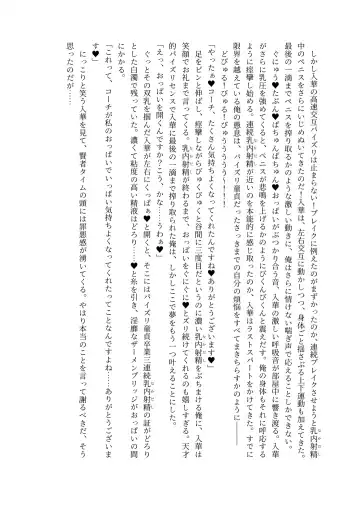 しかし入華の高速交互パイズリは止まらない！ブレイクに例えたのがまずかったのか、連続ブレイクさせようと乳内射精
中のペニスをさらにいじめぬいてきたのだ！入華は、左右交互に動かしつつ、身体ごと揺さぶる上下運動も加えてきた。
最後の一滴までペニスを搾り取るかのような激しい動きに、俺はさらに情けない喘ぎ声で応えることしかできない。
ぐにゅう♥たぷん♥ぱちゅんぱちゅん♥おっぱいがぶつかり合う音、入華の激しい呼吸音が部屋中に響き渡る。入華
がさらに乳圧を強めてくると、ペニスが悲鳴を上げるかのようにびくんびくんと震えだす。俺の身体もそれに呼応する
ように痙攣し始める。連続乳内射精が近いのを本能的に感じ取ったのか、入華はラストスパートをかけてきた。すでに
限界を越えている俺の感息は、パイズリ童貞だったさっきまでの自分の煩悩をすべてまきちらすかのように――――
びゅる！びゅるるー！びゅうううう！！
「やったぁ♥コーチ、たくさん気持ちよくなってくれたんですね♥ありがとうございます♥」
足をピンと伸ばし、痙攣しながらびゅくびゅくと谷間に三度目だというのに濃い乳内射精をぶちまける俺に、入華は
笑顔でお礼まで言ってくる。乳内射精が終わるまで、おっぱいをぐにぐに♥とズリ続けてくれるのも嬉しすぎる。天才
的パイズリセンスで入華に最後の一滴まで搾り取られた俺は、しかしここで夢をもう一つ叶えることにした。
「えっ、おっぱいを開くんですか？こう、かな…うわぁ♥」
ぐっとその双乳を掴んだ入華が左右にくっぱぁ♥と開くと、そこにはパイズリ童貞卒業三連続乳内射精の証がどろり
とした白濁で残っていた。濃くて粘度の高い精液はどろり…♥と糸を引き、淫靡なザーメンブリッジがおっぱいの間
にかかる。
「これって、コーチが私のおっぱいでいっぱい気持ちよくなってくれたってことなんですよね…ありがとうございま
す♥」
にっこりと笑う入華を見て、賢者タイムの頭には罪悪感が湧いてくる。やはり本当のことを言って謝るべきだ、そう
思ったのだが…